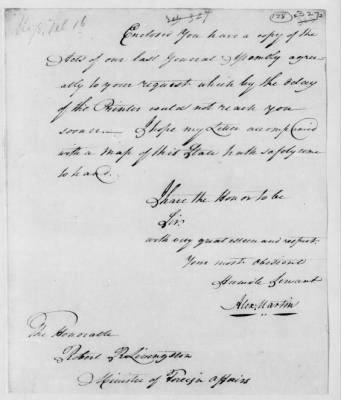 Enclosed You have a copy of the
Acts of our last General Assembly agree-
ally to your request which by the delay
of the Printer could not reach you
sooner. I hope my Letter accompanied
with a Map of this State hath safely come
to hand.
I have the Honor to be
Sir,
with very great esteem and respect
Your most obedient
Humble Servant
Alex. Martin
The Honorable
Robert R Livingston
Minister of Foreign Affairs